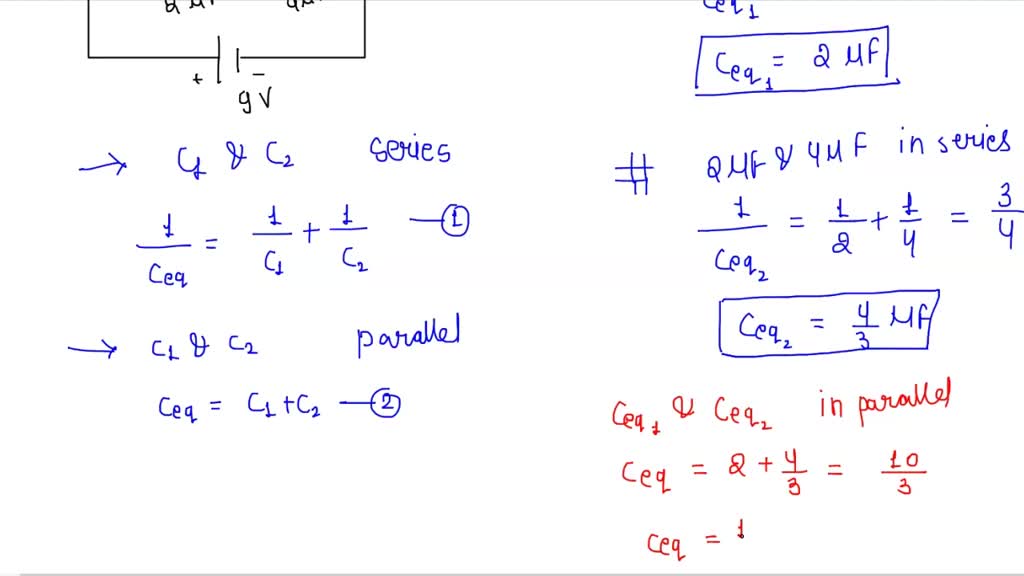 2 μF 4μF
+ −
9V
→ C1 & C2 series
1/Ceq = 1/C1 + 1/C2 —①
→ C1 & C2 parallel
Ceq = C1 + C2 —②
Ceq1
Ceq1 = 2 μF
# 2μF & 4μF in series
1/Ceq2 = 1/2 + 1/4 = 3/4
Ceq2 = 4/3 μF
Ceq1 & Ceq2 in parallel
Ceq = 2 + 4/3 = 10/3
Ceq = 1